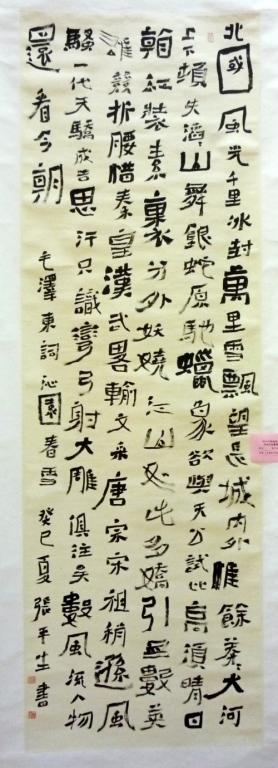 北國風光千里冰封萬里雪飄望長城内外惟餘莽莽大河
上下頓失滔滔山舞銀蛇原馳蠟象欲與天公試比高須晴日
看紅裝素裹分外妖嬈江山如此多嬌引無數英
雄競折腰惜秦皇漢武畧輸文采唐宗宋祖稍遜風
騷一代天驕成吉思汗只識彎弓射大雕俱往矣數風流人物
還看今朝 毛澤東詞沁園春雪 癸巳夏張平生書